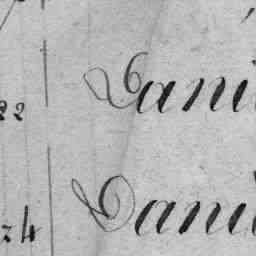 22 Dani
24 Dani